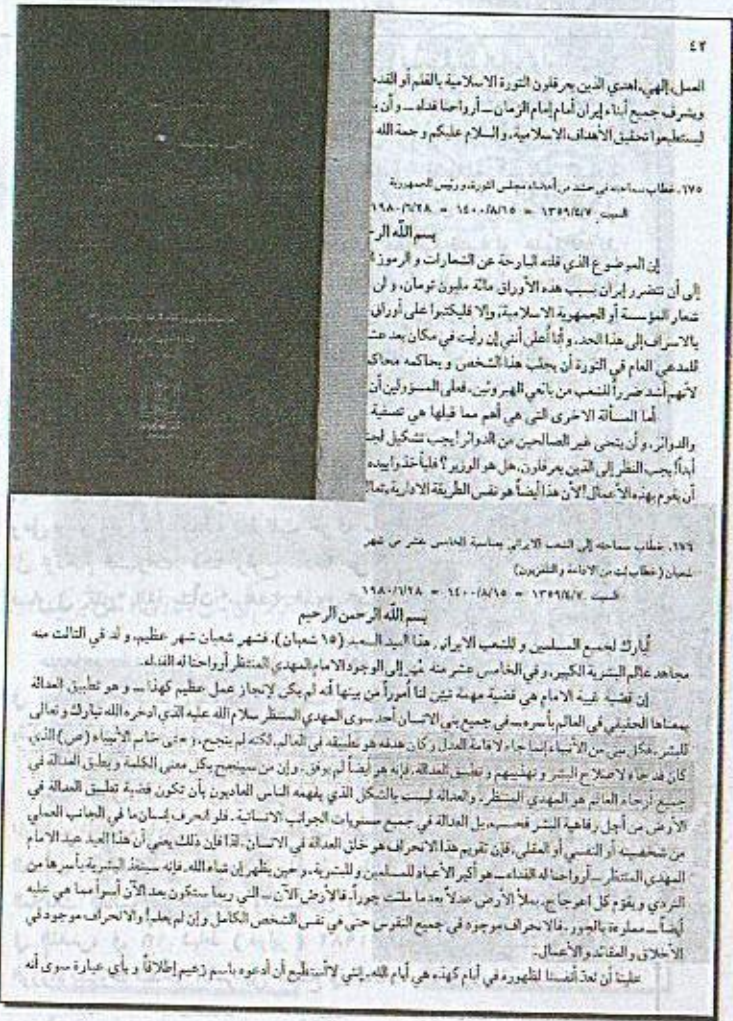 ٤٢
العمل، إلهي، اهدي الذين يعرقلون الثورة الاسلامية بالقلم أو القدم
ويشرف جميع أبناء إيران أمام إمام الزمان ــ أرواحنا فداه ــ و أن
ليستطيعوا تحقيق الأهداف الاسلامية، و السلام عليكم و رحمة الله
١٧٥. خطاب سماحته في حشد من أعضاء مجلس الثورة، و رئيس الجمهورية
السبت ١٣٥٩/٤/٧ = ١٤٠٠/٨/١٥ = ١٩٨٠/٦/٢٨
بسم الله الر
إن الموضوع الذي قلته البارحة عن الشعارات و الرموز
إلى أن تتضرر إيران بسبب هذه الأوراق مائة مليون تومان، و ان
شعار المؤسسة أو الجمهورية الاسلامية، وإلا فليكتبوا على أوراق
بالاسراف إلى هذا الحد. و أنا أعلن أنني إن رأيت في مكان بعد
للمدعي العام في الثورة أن يجلب هذا الشخص و يحاكمه محاك
لأنهم أشد ضرراً للشعب من بائعي الهروئين. فعلى المسؤولين أن
أما المسألة الاخرى التي هي أهم مما قبلها هي تصفية
والدوائر، و أن ينحى غير الصالحين من الدوائر! يجب تشكيل لجنـ
أبداً! يجب النظر إلى الذين يعرقلون، هل هو الوزير؟ فليأخذوا بيده
أن يقوم بهذه الأعمال! لأن هذا أيضاً هو نفس الطريقة الادارية،
١٧٦. خطاب سماحته إلى الشعب الايراني بمناسبة الخامس عشر من شهر
شعبان (خطاب بُث من الاذاعة و التلفزيون)
السبت ١٣٥٩/٤/٧ = ١٤٠٠/٨/١٥ = ١٩٨٠/٦/٢٨
بسم الله الرحمن الرحيم
أبارك لجميع المسلمين و للشعب الايراني هذا العيد السعيد (١٥ شعبان). فشهر شعبان شهر عظيم، ولد في الثالث منه
مجاهد عالم البشرية الكبير، و في الخامس عشر منه إلى الوجود الامام المهدي المنتظر أرواحنا له الفداء.
إن قضية غيبة الامام هي قضية مهمة تبين لنا أموراً من بينها أنه لم يكن لإنجاز عمل عظيم كهذا ــ و هو تطبيق العدالة
بمعناها الحقيقي في العالم بأسره ــ في جميع بني الانسان أحد سوى المهدي المنتظر سلام الله عليه الذي ادخره الله تبارك و تعالى
للبشر. فكل نبي من الأنبياء إنما جاء لاقامة العدل و كان هدفه هو تطبيقه في العالم، لكنه لم ينجح. و حتى خاتم الأنبياء (ص) الذي
كان قد جاء لاصلاح البشر و تهذيبهم و تطبيق العدالة، فإنه هو أيضاً لم يوفق. وإن من سينجح بكل معنى الكلمة و يطبق العدالة في
جميع أرجاء العالم هو المهدي المنتظر. والعدالة ليست بالشكل الذي يفهمه الناس العاديون بأن تكون قضية تطبيق العدالة في
الأرض من أجل رفاهية البشر فحسب، بل العدالة في جميع مستويات الجوانب الانسانية. فلو انحرف إنسان ما في الجانب العملي
من شخصيته أو النفسي أو العقلي، فإن تقويم هذا الانحراف هو خلق العدالة في الانسان. لذا فإن ذلك يعني أن هذا العيد عيد الامام
المهدي المنتظر ــ أرواحنا له الفداء ــ هو أكبر الأعياد للمسلمين و للبشرية. و حين يظهر إن شاء الله، فإنه سينقذ البشرية بأسرها من
التردي و يقوّم كل اعوجاج. يملأ الأرض عدلاً بعدما ملئت جوراً. فالأرض الآن ــ التي ربما ستكون بعد الآن أسوأ مما هي عليه
أيضاً ــ مملوءة بالجور. فالانحراف موجود في جميع النفوس حتى في نفس الشخص الكامل و إن لم يعلم! والانحراف موجود في
الأخلاق و العقائد و الأعمال.
علينا أن نعدّ أنفسنا لظهوره في أيام كهذه هي أيام الله. إنني لا أستطيع أن أدعوه باسم زعيم إطلاقاً و بأي عبارة سوى أنه